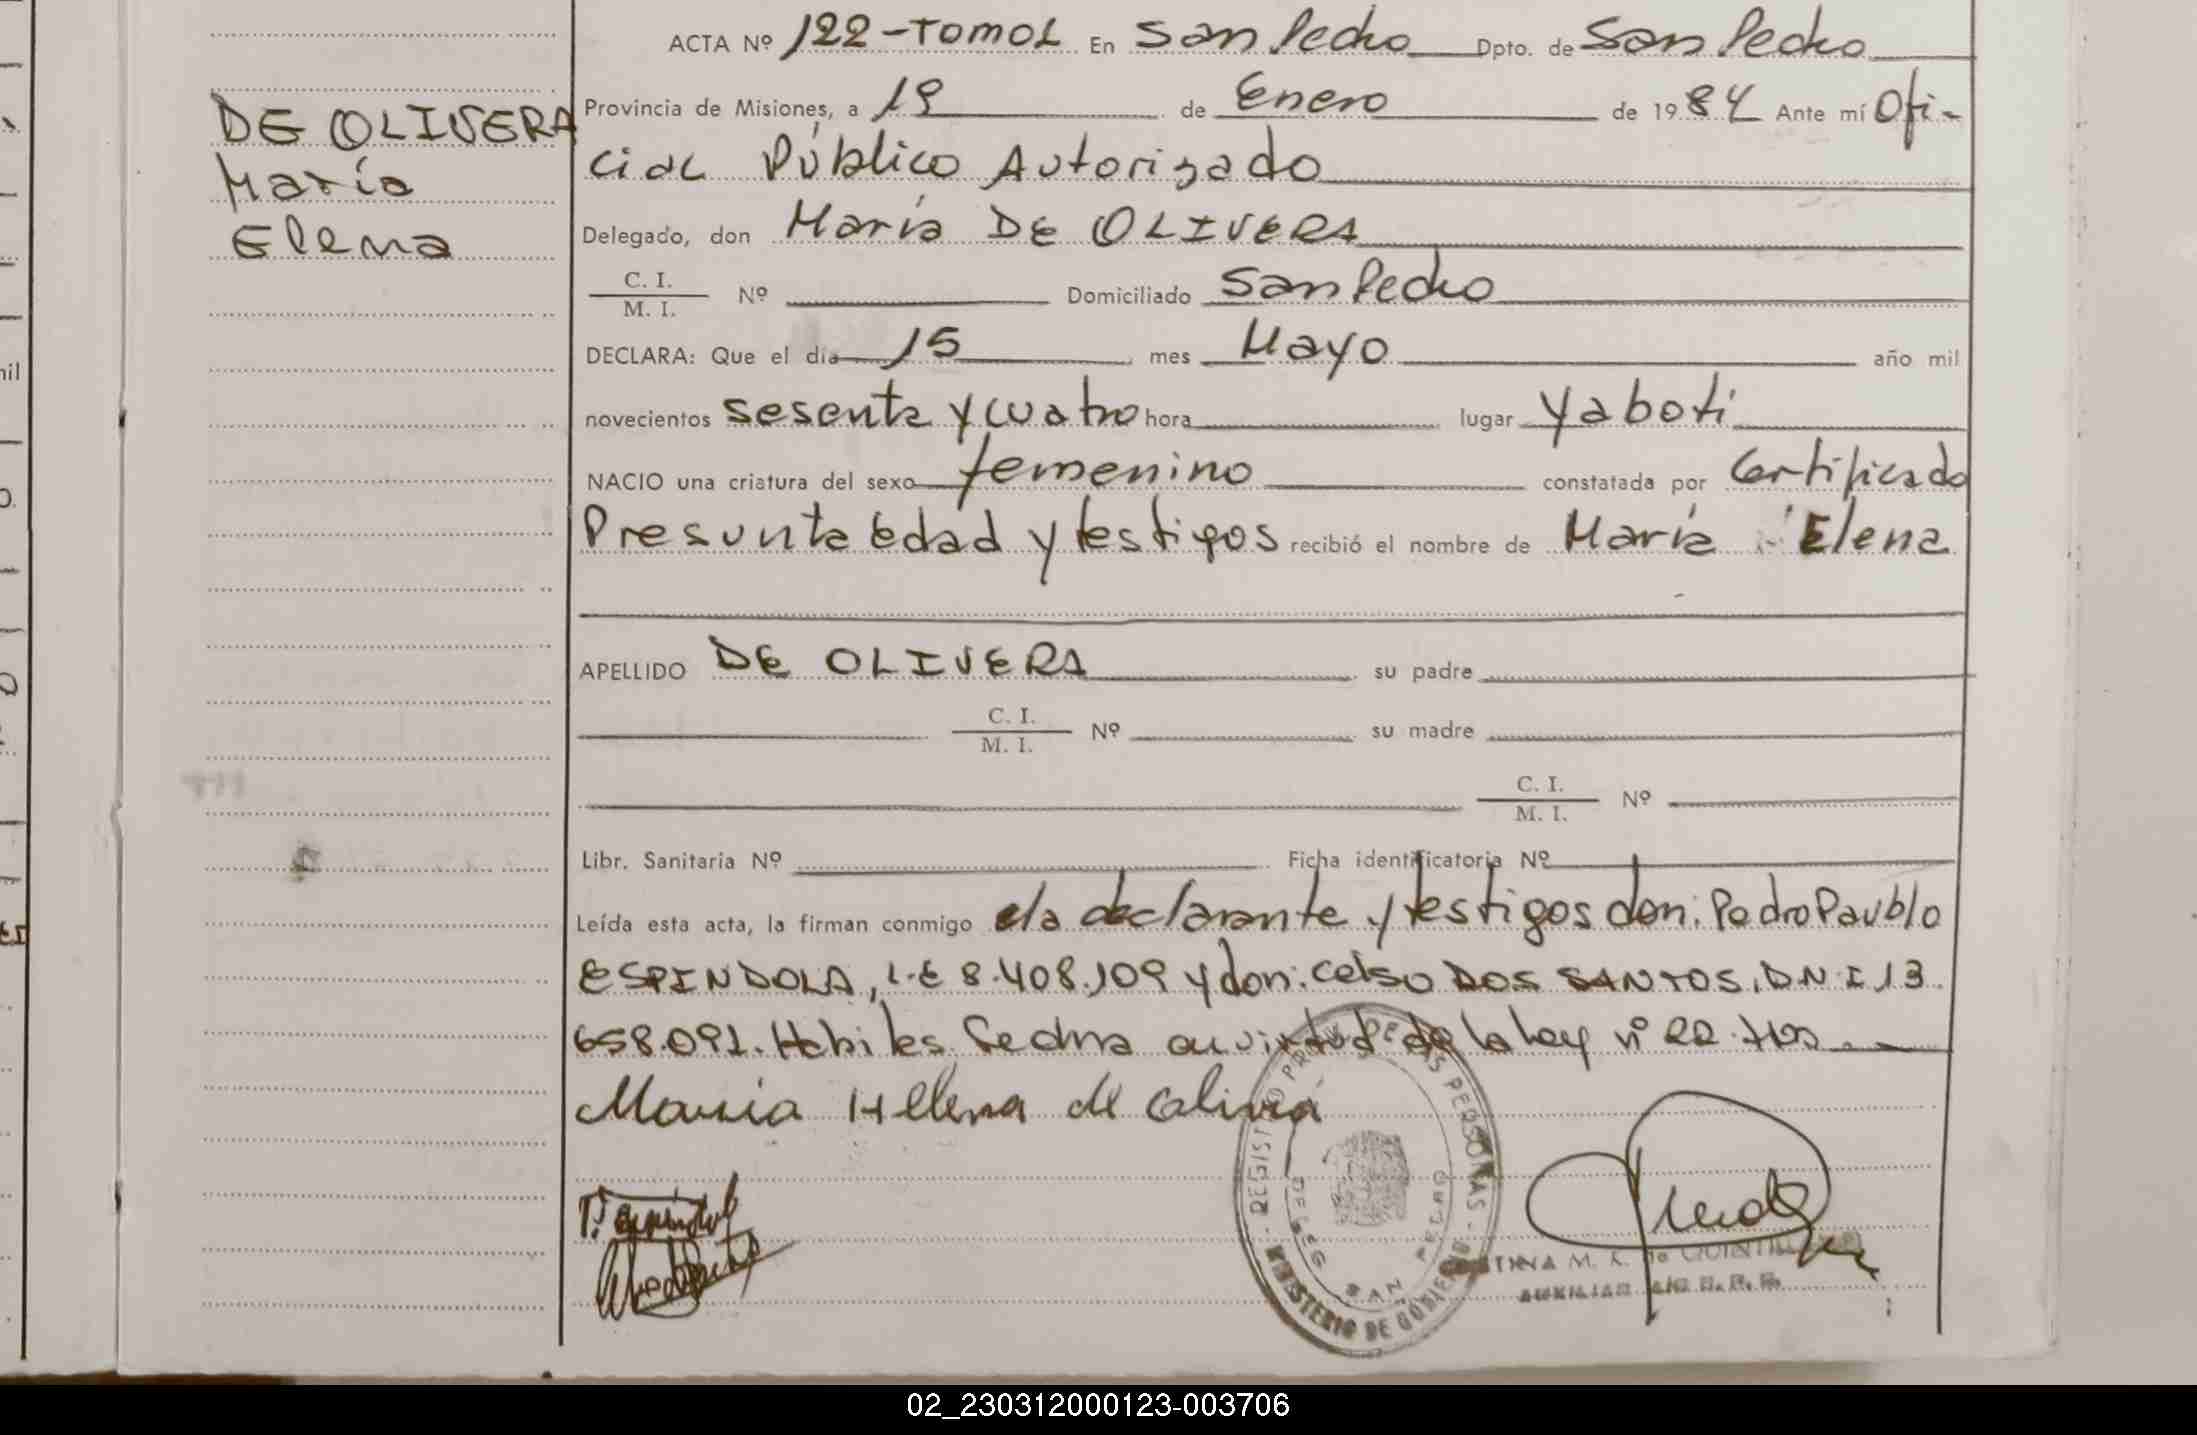 ACTA Nº 122-TOMO I En San Pedro Dpto. de San Pedro
DE OLIVERA
María
Elena
Provincia de Misiones, a 19 de Enero de 1984 Ante mí Ofi-
cial Público Autorizado
Delegado, don María DE OLIVERA
C. I.
M. I. Nº Domiciliado San Pedro
DECLARA: Que el día 15 mes Mayo año mil
novecientos sesenta y cuatro hora lugar Yaboti
NACIO una criatura del sexo femenino constatada por Certificado
Presunta edad y testigos recibió el nombre de María Elena
APELLIDO DE OLIVERA su padre
C. I.
M. I. Nº su madre
C. I.
M. I. Nº
Libr. Sanitaria Nº Ficha identificatoria Nº
Leída esta acta, la firman conmigo la declarante y testigos don: Pedro Paublo
ESPINDOLA, L.E 8.408.109 y don: Celso DOS SANTOS, D.N.I 13.
658.091. Habiles. Se en virtud de la Ley nº 22.
Maria Hellena de
REGISTRO PROV. DE LAS PERSONAS
DELEG. SAN PEDRO
MINISTERIO DE GOBIERNO
M. K. de
AUXILIAR
02_230312000123-003706